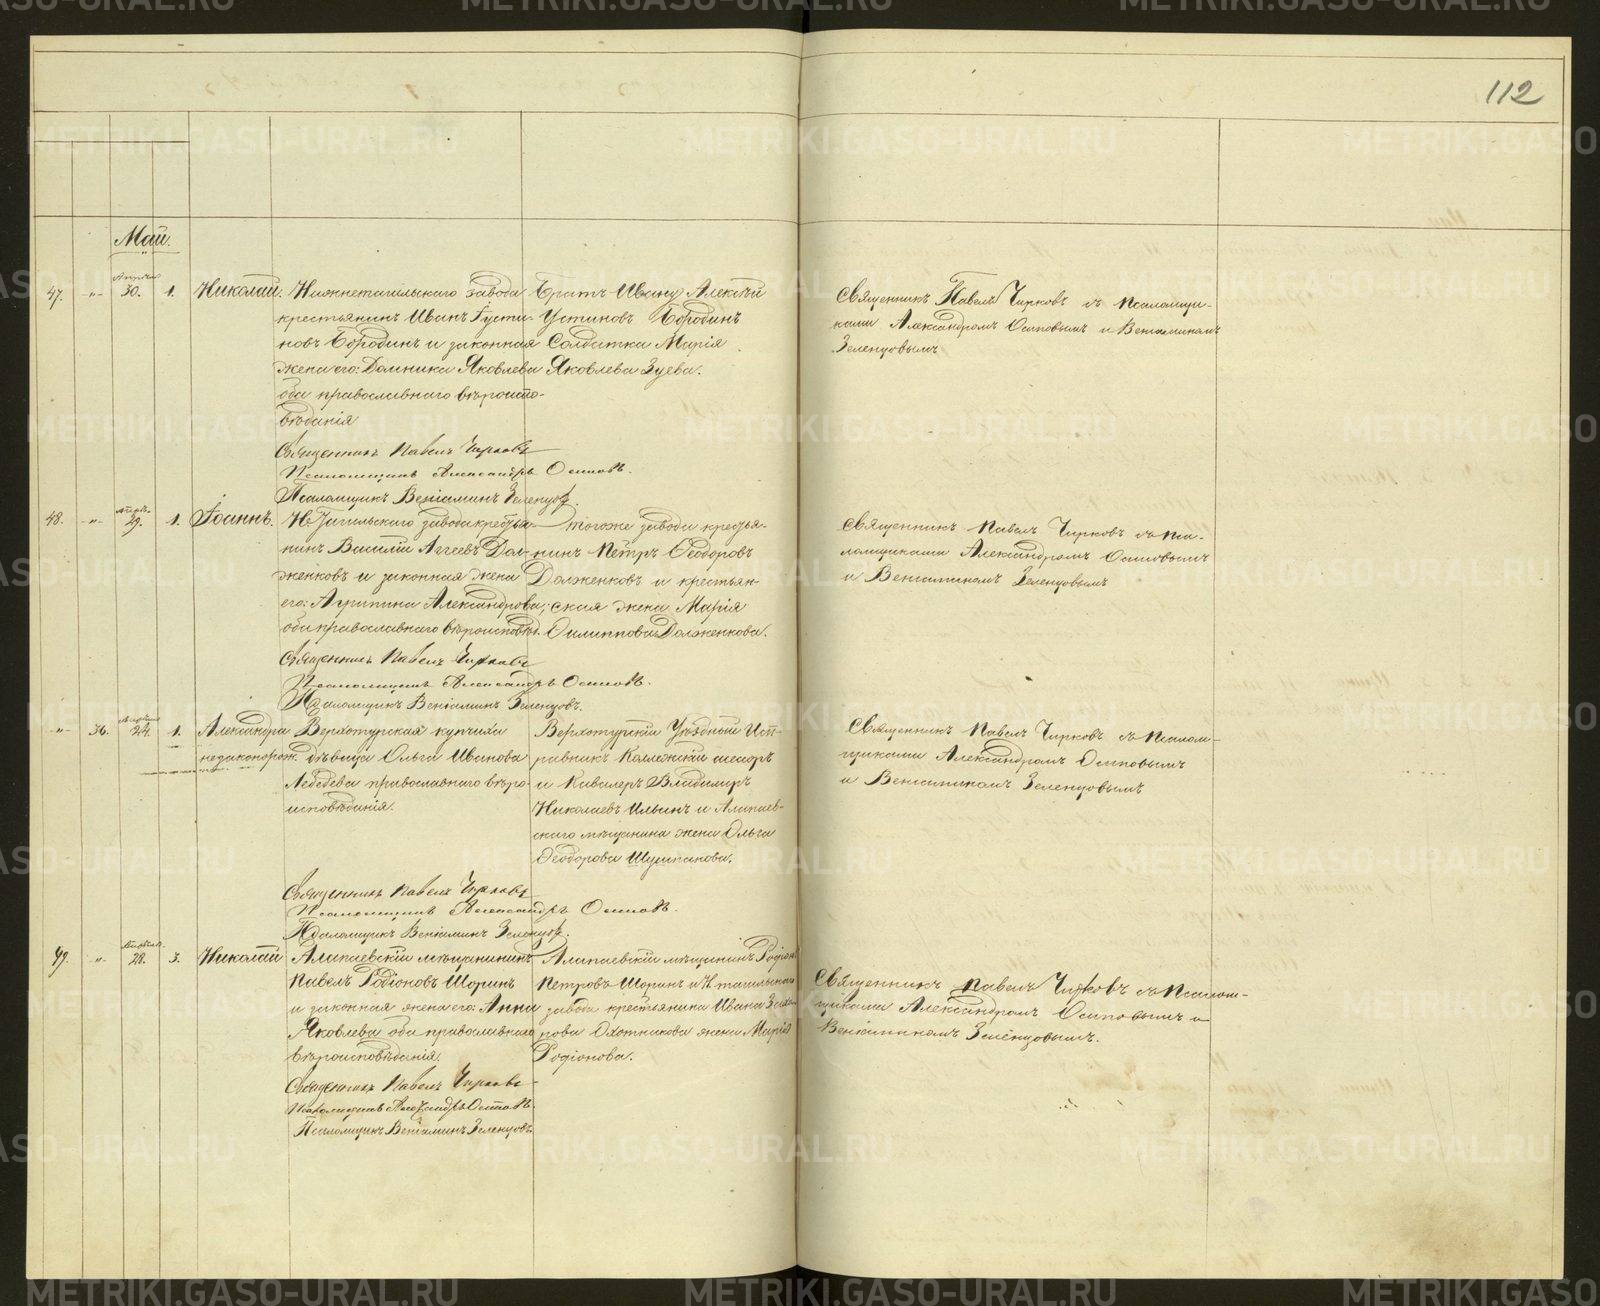 112
Май.
47. -"- Апреля 30. 1. Николай.
Нижнетагильскаго завода
крестьянинъ Иванъ Густи-
новъ Бородинъ и законная
жена его: Домника Яковлева
оба православнаго вѣроиспо-
вѣданія
Священникъ Павелъ Чирковъ
Псаломщикъ Александръ Осиповъ.
Псаломщикъ Веніаминъ Зеленцовъ.
Братъ Ивану Алексѣй
Устиновъ Бородинъ
Солдатка Марія
Яковлева Зуева.
Священникъ Павелъ Чирковъ съ псаломщи-
ками Александромъ Осиповымъ и Веніаминомъ
Зеленцовымъ
48. -"- Апрѣ. 29. 1. Іоаннъ.
Н-Тагильскаго завода крестья-
нинъ Василій Аггеевъ Дол-
женковъ и законная жена
его: Агрипина Александрова;
оба православнаго вѣроисповѣд.
Священникъ Павелъ Чирковъ
Псаломщикъ Александръ Осиповъ.
Псаломщикъ Веніаминъ Зеленцовъ.
тогоже завода крестья-
нинъ Петръ Ѳеодоровъ
Долженковъ и крестьян-
ская жена Марія
Филиппова Долженкова.
Священникъ Павелъ Чирковъ съ пса-
ломщиками Александромъ Осиповымъ
и Веніаминомъ Зеленцовымъ
-"- 36. Апреля 24. 1. Александра
незаконорож.
Верхотурская купчиха
дѣвица Ольга Иванова
Лебедева православнаго вѣро-
исповѣданія.
Священникъ Павелъ Чирковъ
Псаломщикъ Александръ Осиповъ.
Псаломщикъ Веніаминъ Зеленцовъ.
Верхотурскій Уѣздный Исп-
равникъ Коллежскій асесоръ
и Кавалеръ Владимиръ
Николаевъ Ильинъ и Алапаев-
скаго мѣщанина жена Ольга
Ѳеодорова Шушпанова.
Священникъ Павелъ Чирковъ съ псалом-
щиками Александромъ Осиповымъ
и Веніаминомъ Зеленцовымъ
49. -"- Апреля 28. 3. Николай
Алапаевскій мѣщанинъ
Павелъ Родіоновъ Шоринъ
и законная жена его: Анна
Яковлева оба православнаго
вѣроисповѣданія.
Священникъ Павелъ Чирковъ
Псаломщикъ Александръ Осиповъ.
Псаломщикъ Веніаминъ Зеленцовъ.
Алапаевскій мѣщанинъ Родіонъ
Петровъ Шоринъ и Н. тагильскаго
завода крестьянина Ивана Заха-
рова Охотникова жена Марія
Родіонова.
Священникъ Павелъ Чирковъ съ Псалом-
щиками Александромъ Осиповымъ и
Веніаминомъ Зеленцовымъ.
METRIKI.GASO-URAL.RU